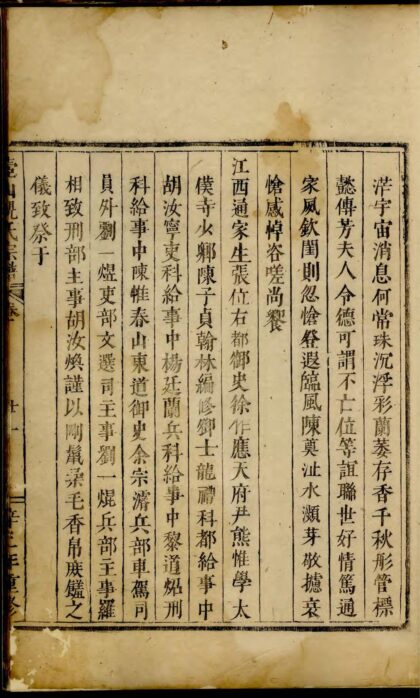 茫宇宙消息何常珠沉浮彩蘭萎存香千秋彤管標
懿傳芳夫人令德可謂不亡位等誼聯世好情篤通
家風欽閨則忽愴登遐臨風陳奠沚水瀕芽敬攄哀
愴慼悼咨嗟尚饗
江西通家生張位右都御史徐作應天府尹熊惟學太
僕寺少卿陳子貞翰林編修鄧士龍禮科都給事中
胡汝寧吏科給事中楊廷蘭兵科給事中黎道炤刑
科給事中陳惟春山東道御史余宗濬兵部車駕司
員外劉一焜吏部文選司主事劉一焜兵部主事羅
相致刑部主事胡汝煥謹以剛鬣柔毛香帛庶饈之
儀致祭于
山 氏宗譜 卷
廿一
辛 年重修